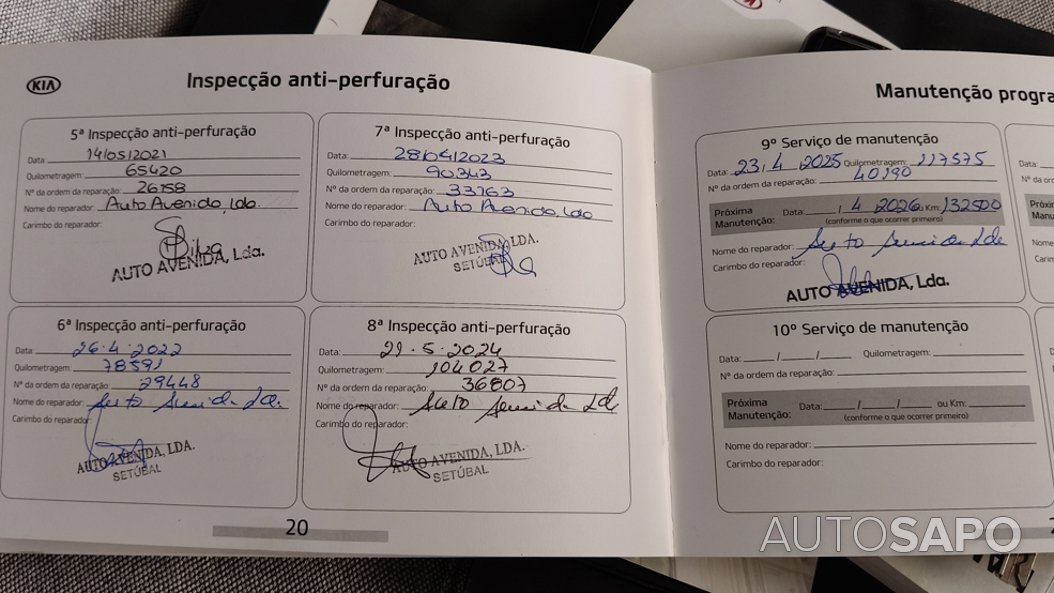 KIA
Inspecção anti-perfuração
5ª Inspecção anti-perfuração
Data: 14/05/2021
Quilometragem: 65420
Nº da ordem da reparação: 26758
Nome do reparador: Auto Avenida, Lda.
Carimbo do reparador:
AUTO AVENIDA, Lda.
7ª Inspecção anti-perfuração
Data: 28/04/2023
Quilometragem: 90343
Nº da ordem da reparação: 33763
Nome do reparador: Auto Avenida, Lda
Carimbo do reparador:
AUTO AVENIDA, LDA.
SETÚBAL
6ª Inspecção anti-perfuração
Data: 26.4.2022
Quilometragem: 78591
Nº da ordem da reparação: 29448
Nome do reparador: Auto Avenida Lda.
Carimbo do reparador:
AUTO AVENIDA, LDA.
SETÚBAL
8ª Inspecção anti-perfuração
Data: 29.5.2024
Quilometragem: 104027
Nº da ordem da reparação: 36807
Nome do reparador: Auto Avenida Lda
Carimbo do reparador:
AUTO AVENIDA, LDA.
SETÚBAL
20
Manutenção progra
9º Serviço de manutenção
Data: 23/4/2025 Quilometragem: 117575
Nº da ordem da reparação: 40190
Próxima Manutenção: Data: / 4 / 2026 ou Km: 132500
(conforme o que ocorrer primeiro)
Nome do reparador: Auto Avenida Lda
Carimbo do reparador:
AUTO AVENIDA, Lda.
10º Serviço de manutenção
Data: / / Quilometragem:
Nº da ordem da reparação:
Próxima Manutenção: Data: / / ou Km:
(conforme o que ocorrer primeiro)
Nome do reparador:
Carimbo do reparador:
AUTOSAPO